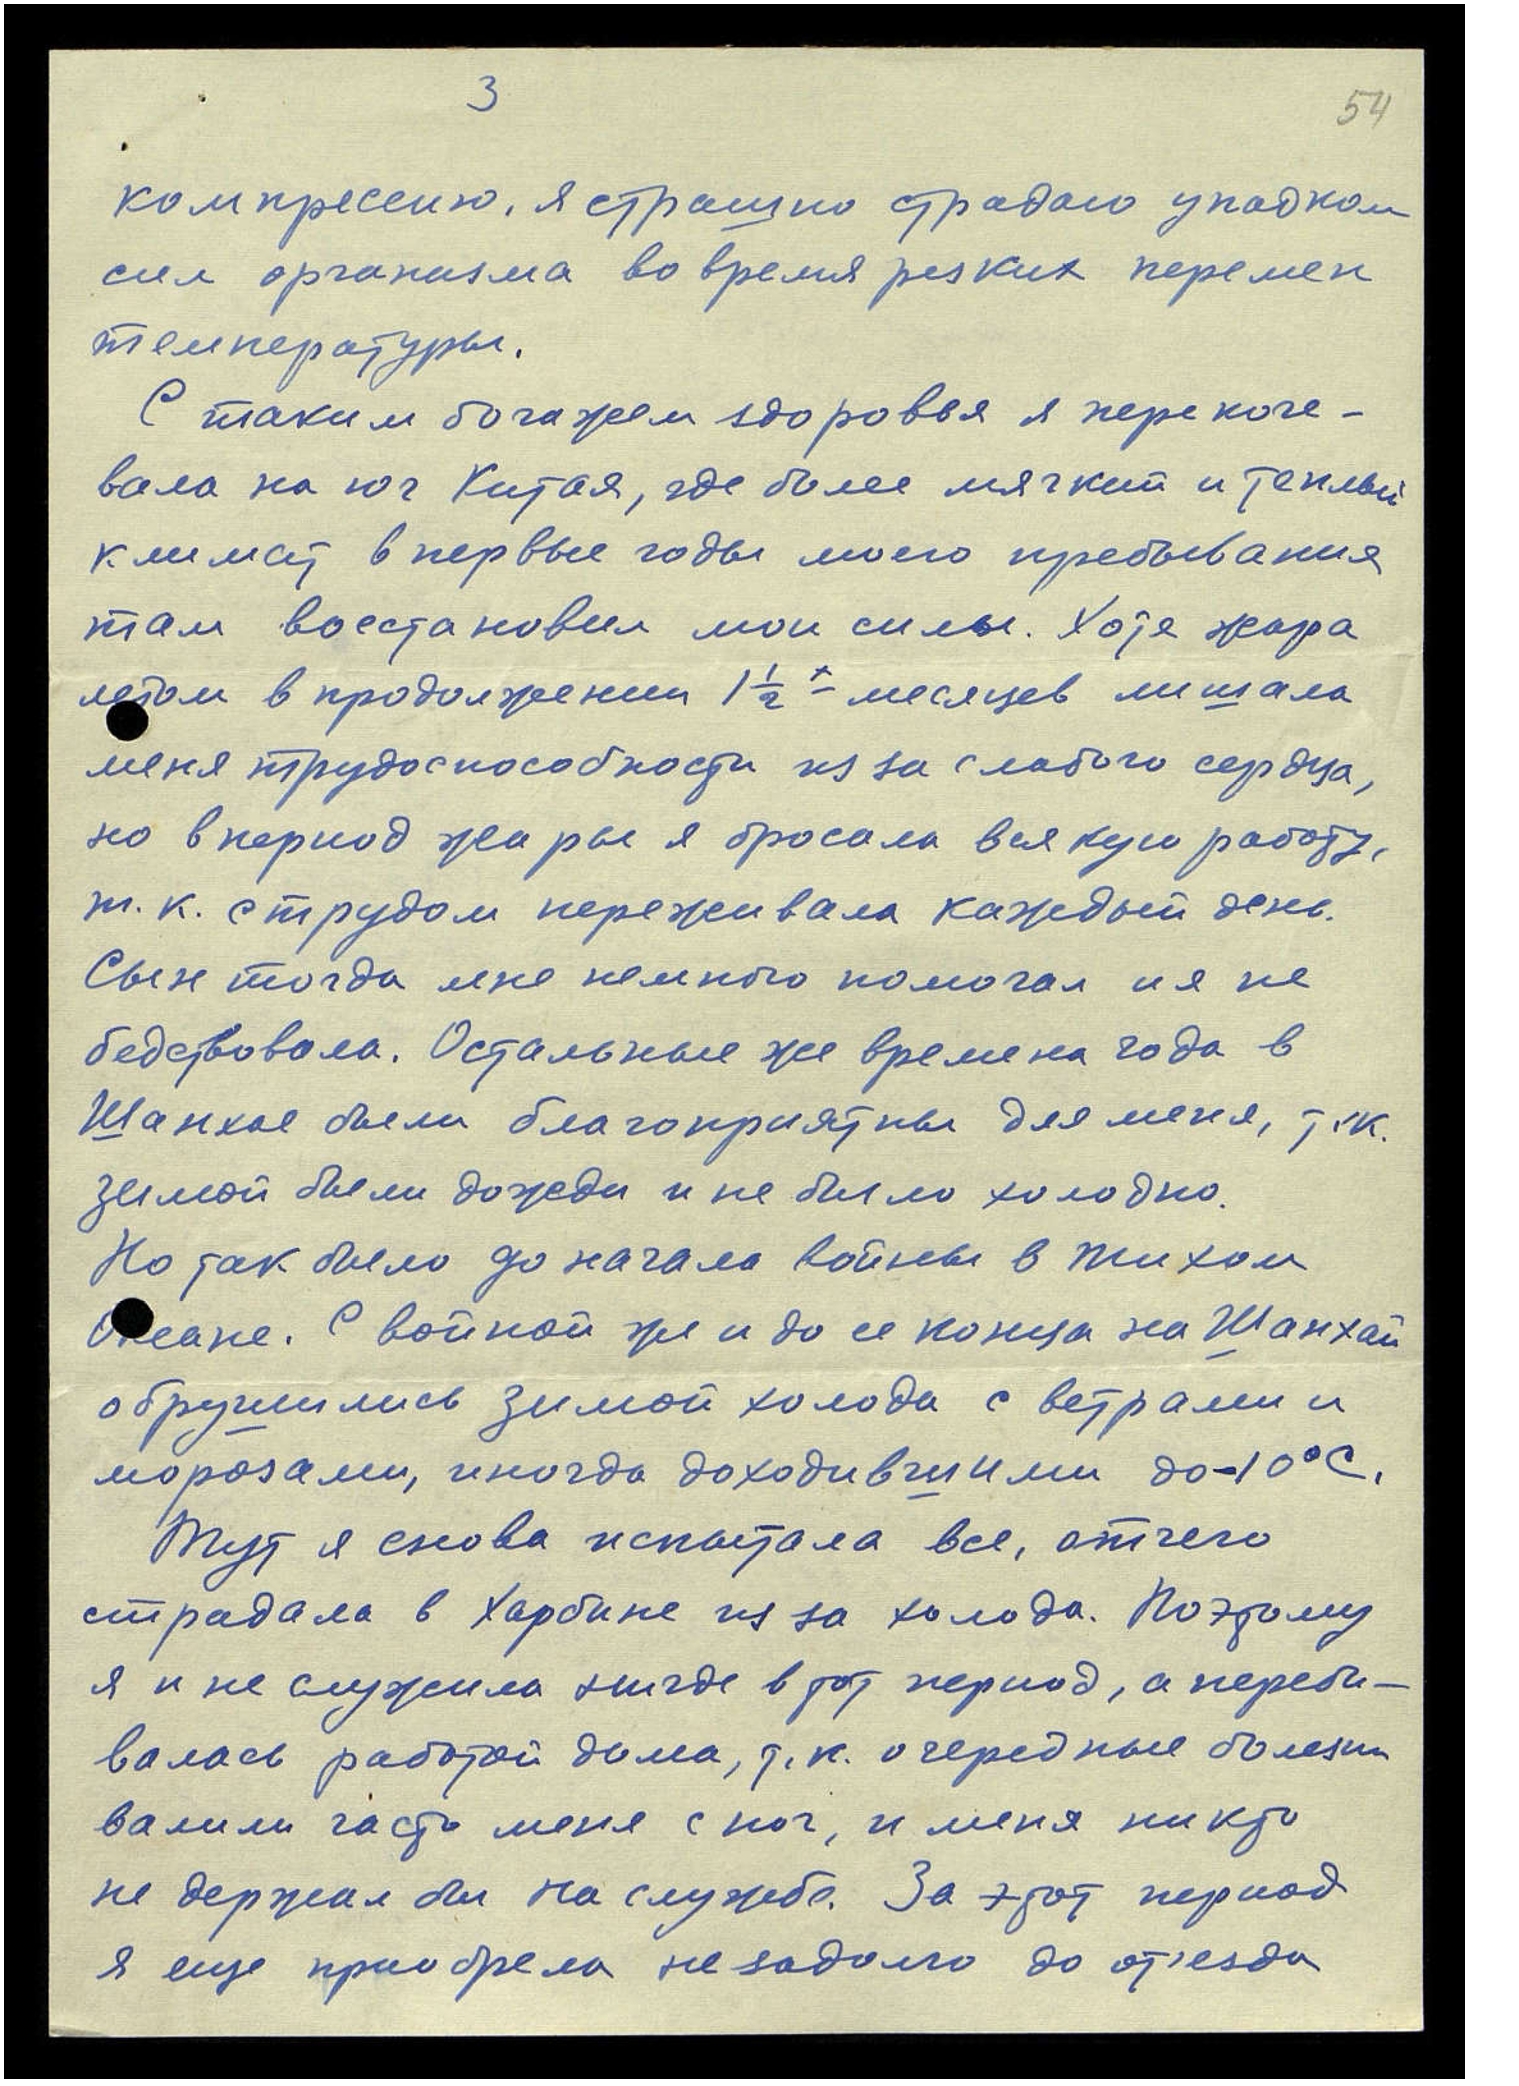 3
54
компрессию. Я страшно страдаю упадком
сил организма во время резких перемен
температуры.
С таким багажем здоровья я перекоче-
вала на юг Китая, где более мягкий и теплый
климат в первые годы моего пребывания
там восстановил мои силы. Хотя жара
летом в продолжении 1½ ± месяцев лишала
меня трудоспособности из за слабого сердца,
но в период жары я бросала всякую работу,
т.к. с трудом переживала каждый день.
Сын тогда мне немного помогал и я не
бедствовала. Остальные же времена года в
Шанхае были благоприятны для меня, т.к.
зимой были дожди и не было холодно.
Но так было до начала войны в Тихом
Океане. С войной же и до ее конца на Шанхай
обрушились зимой холода с ветрами и
морозами, иногда доходившими до -10°C.
Тут я снова испытала все, отчего
страдала в Харбине из за холода. Поэтому
я и не служила нигде в тот период, а переби-
валась работой дома, т.к. очередные болезни
валили часто меня с ног, и меня никто
не держал бы на службе. За этот период
я еще приобрела незадолго до от'езда